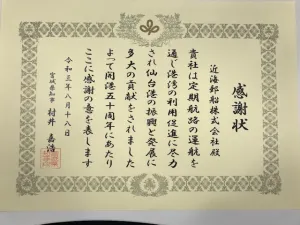 感謝状
近海郵船株式会社殿
貴社は定期航路の運航を
通じ港湾の利用促進に尽力
され仙台港の振興と発展に
多大の貢献をされました
よって開港五十周年にあたり
ここに感謝の意を表します
令和三年八月十八日
宮城県知事 村井嘉浩